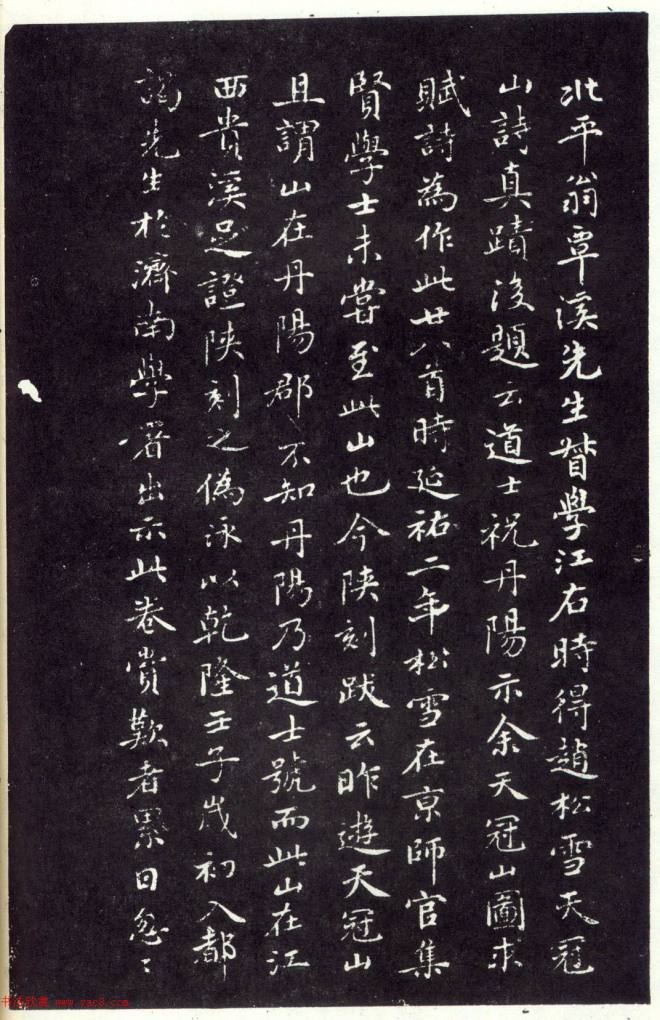 北平翁覃溪先生督學江右時得趙松雪天冠
山詩真蹟後題云道士祝丹陽示余天冠山圖求
賦詩為作此廿八首時延祐二年松雪在京師官集
賢學士未嘗至此山也今陝刻跋云昨遊天冠山
且謂山在丹陽郡不知丹陽乃道士號而此山在江
西貴溪足證陝刻之偽泳以乾隆壬子歲初入都
謁先生於濟南學署出示此卷賞歎者累日忽〻
书法欣赏 www.yac8.com